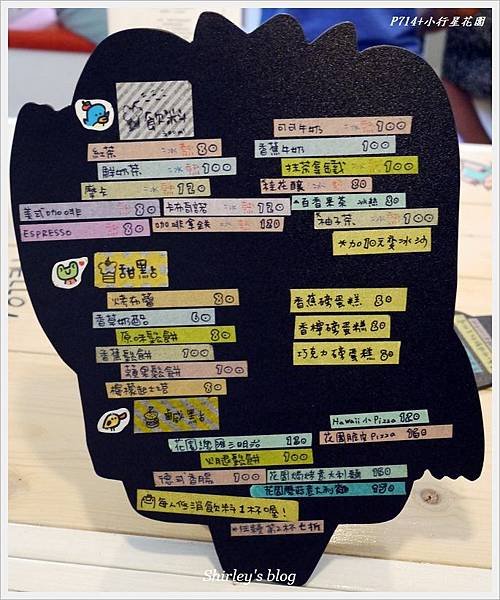 P714+小行星花園
飲料
紅茶 冰 熱 80
鮮奶茶 冰 熱 100
摩卡 冰 熱 120
美式咖啡 80
卡布奇諾 冰 熱 120
ESPRESSO 80
咖啡拿鐵 冰 熱 120
可可牛奶 冰 熱 100
香蕉牛奶 冰 100
抹茶拿鐵 冰 熱 100
桂花釀 冰 熱 80
*百香果茶 冰 熱 80
*柚子茶 冰 熱 100
*加10元變冰沙
甜點
烤布蕾 80
香草奶酪 60
原味鬆餅 80
香蕉鬆餅 100
蘋果鬆餅 100
檸檬起士塔 80
香蕉磅蛋糕 80
香檸磅蛋糕 80
巧克力磅蛋糕 80
鹹點
花園總匯三明治 180
火腿鬆餅 100
德式香腸 100
Hawaii 小 Pizza 120
花園脆皮 Pizza 160
花園焗烤義大利麵 180
花園蘑菇義大利麵
每人低消飲料1杯喔!
*任麵第2杯七折
HELLO
Shirley's blog